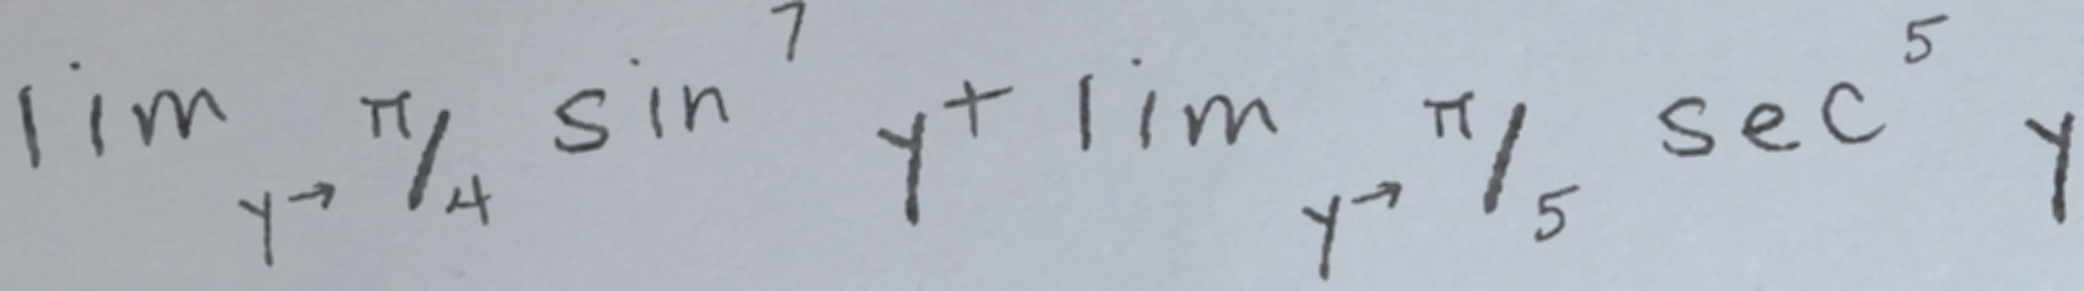 lim y→ π/4 sin^7 y + lim y→ π/5 sec^5 y